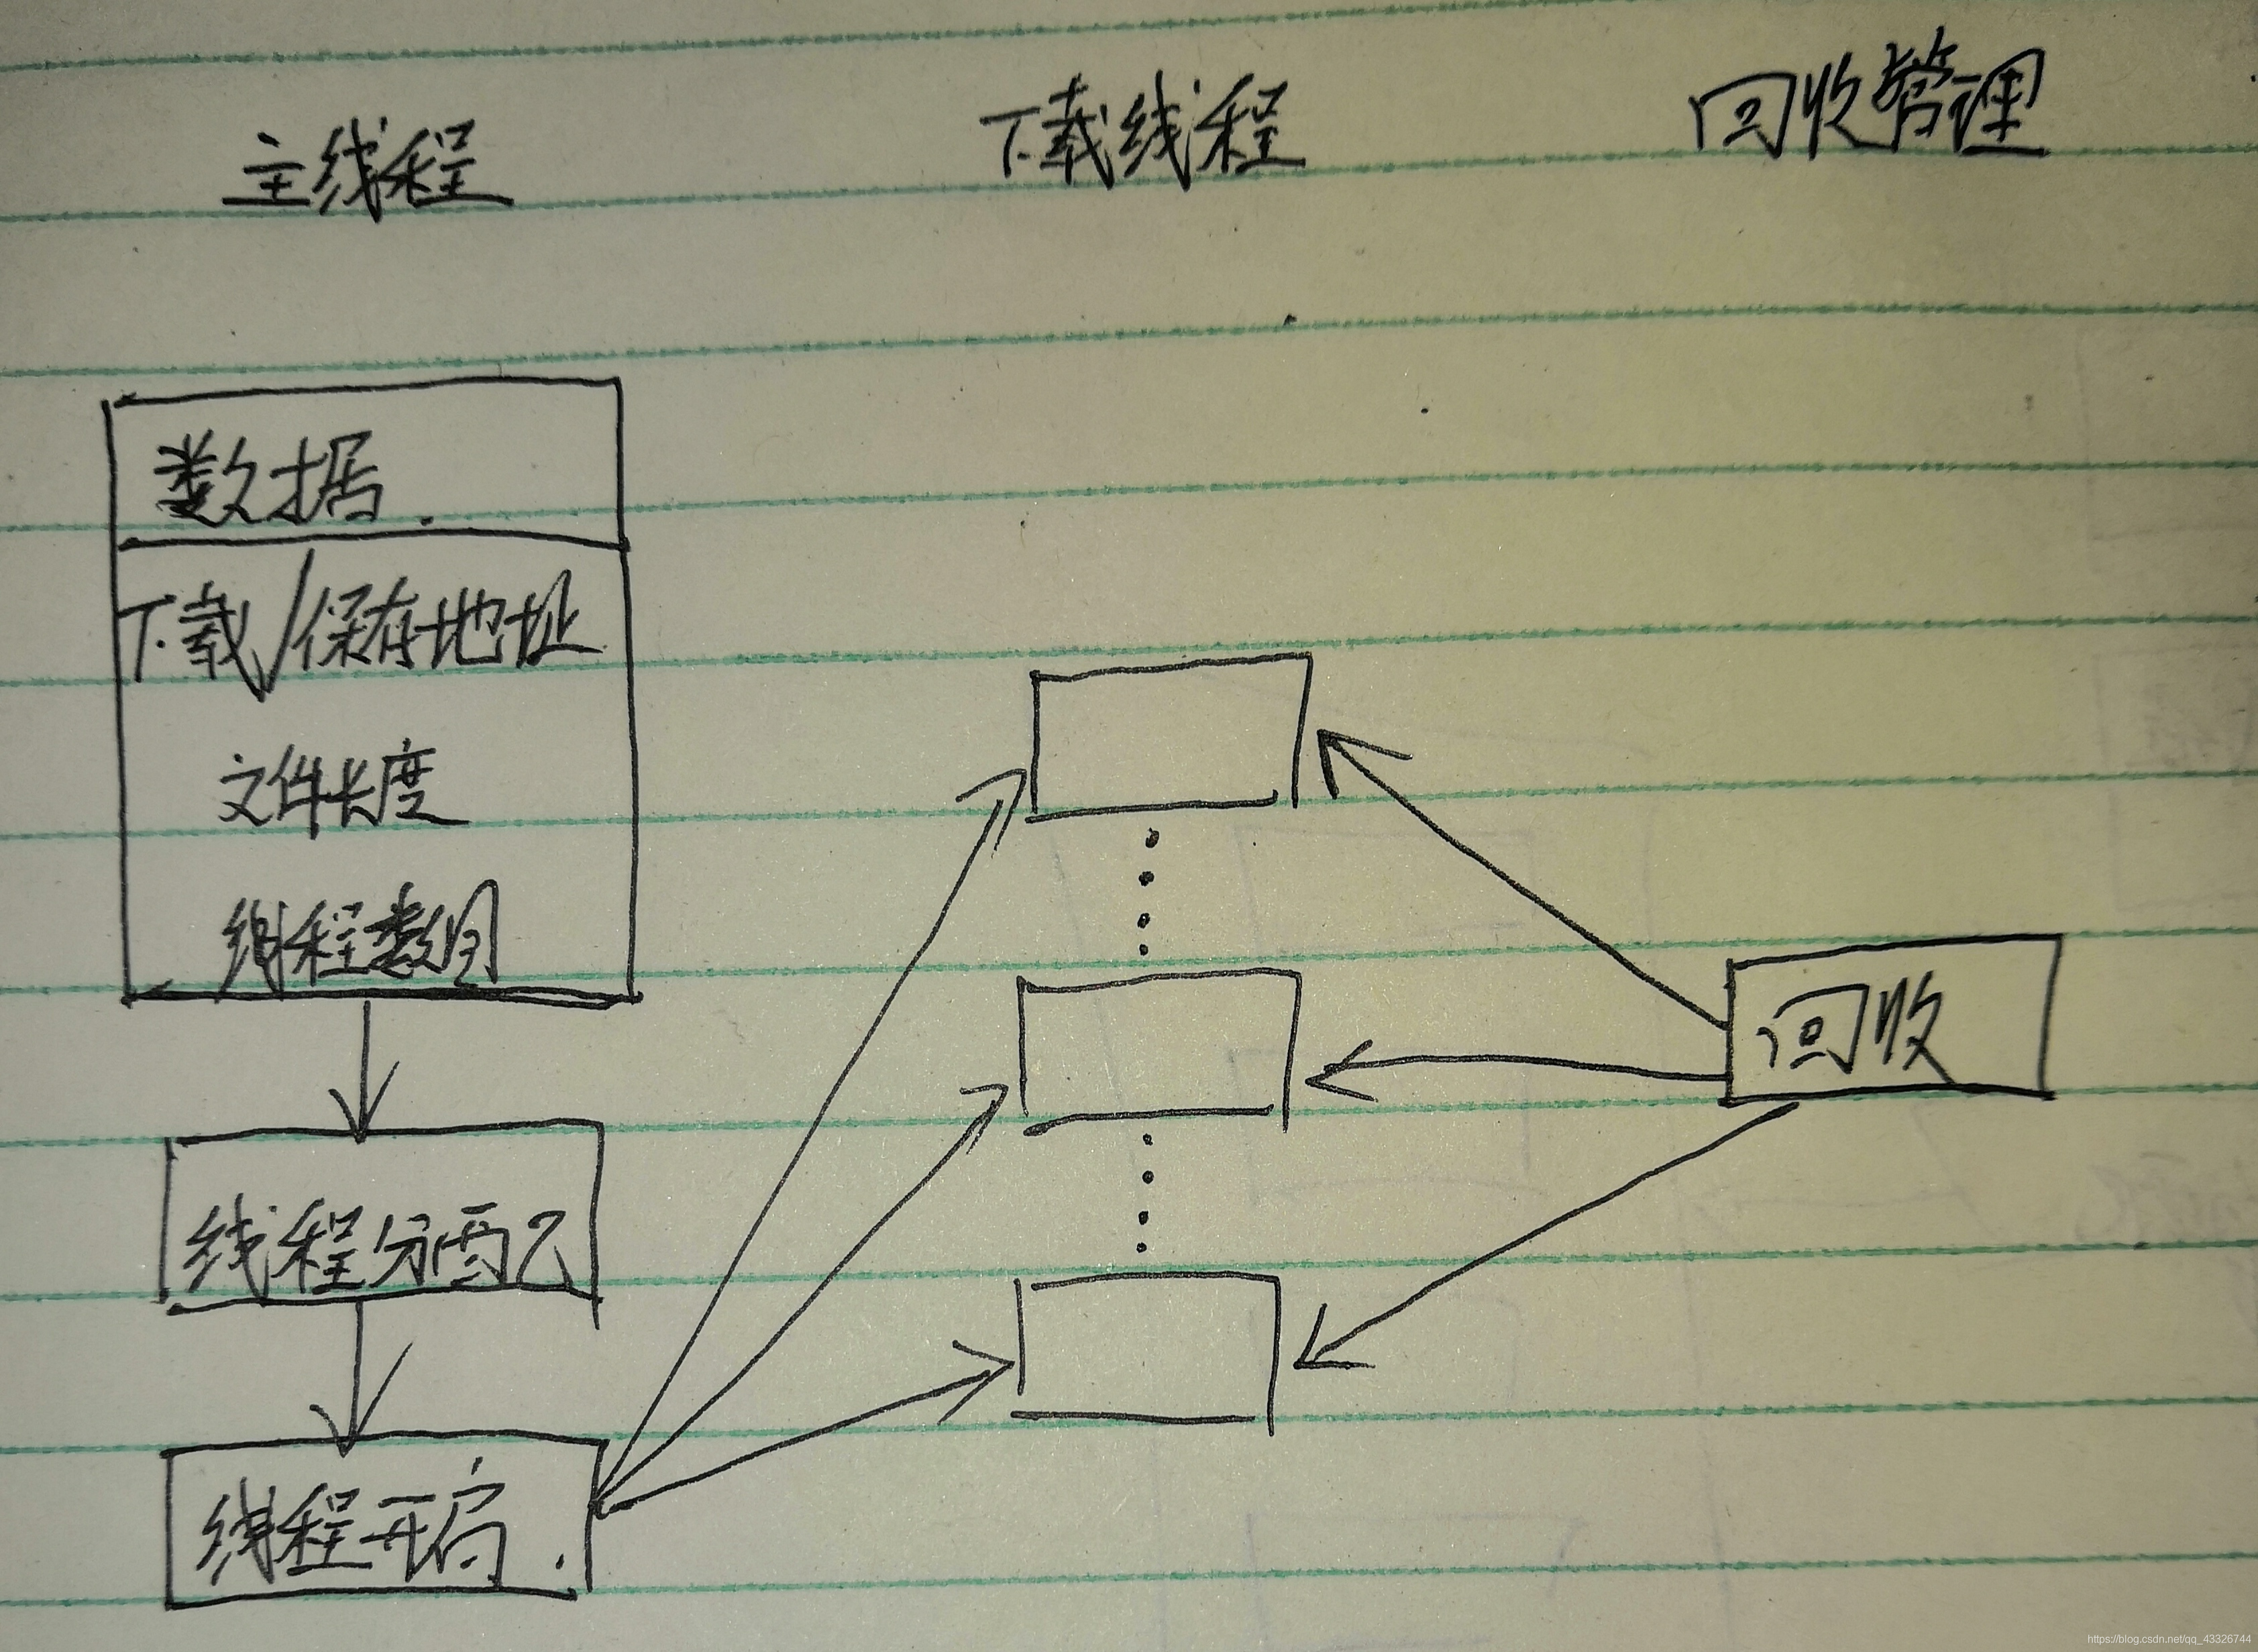 主线程
下载线程
回收管理
数据.
下载/保存地址
文件长度
线程数组
回收
线程分配
线程开启.
https://blog.csdn.net/qq_43326744